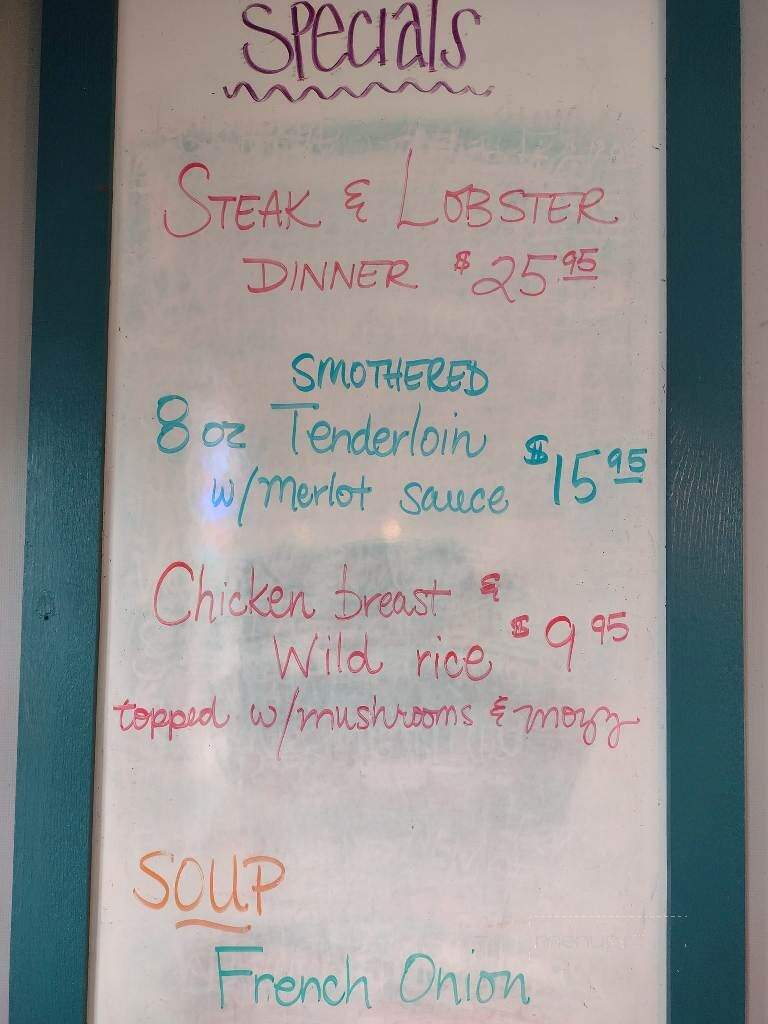 Specials
STEAK & LOBSTER
DINNER $25.95
SMOTHERED
8 oz Tenderloin
w/merlot sauce $15 95
Chicken breast &
Wild rice $9 95
topped w/mushrooms & mozz
SOUP
French Onion